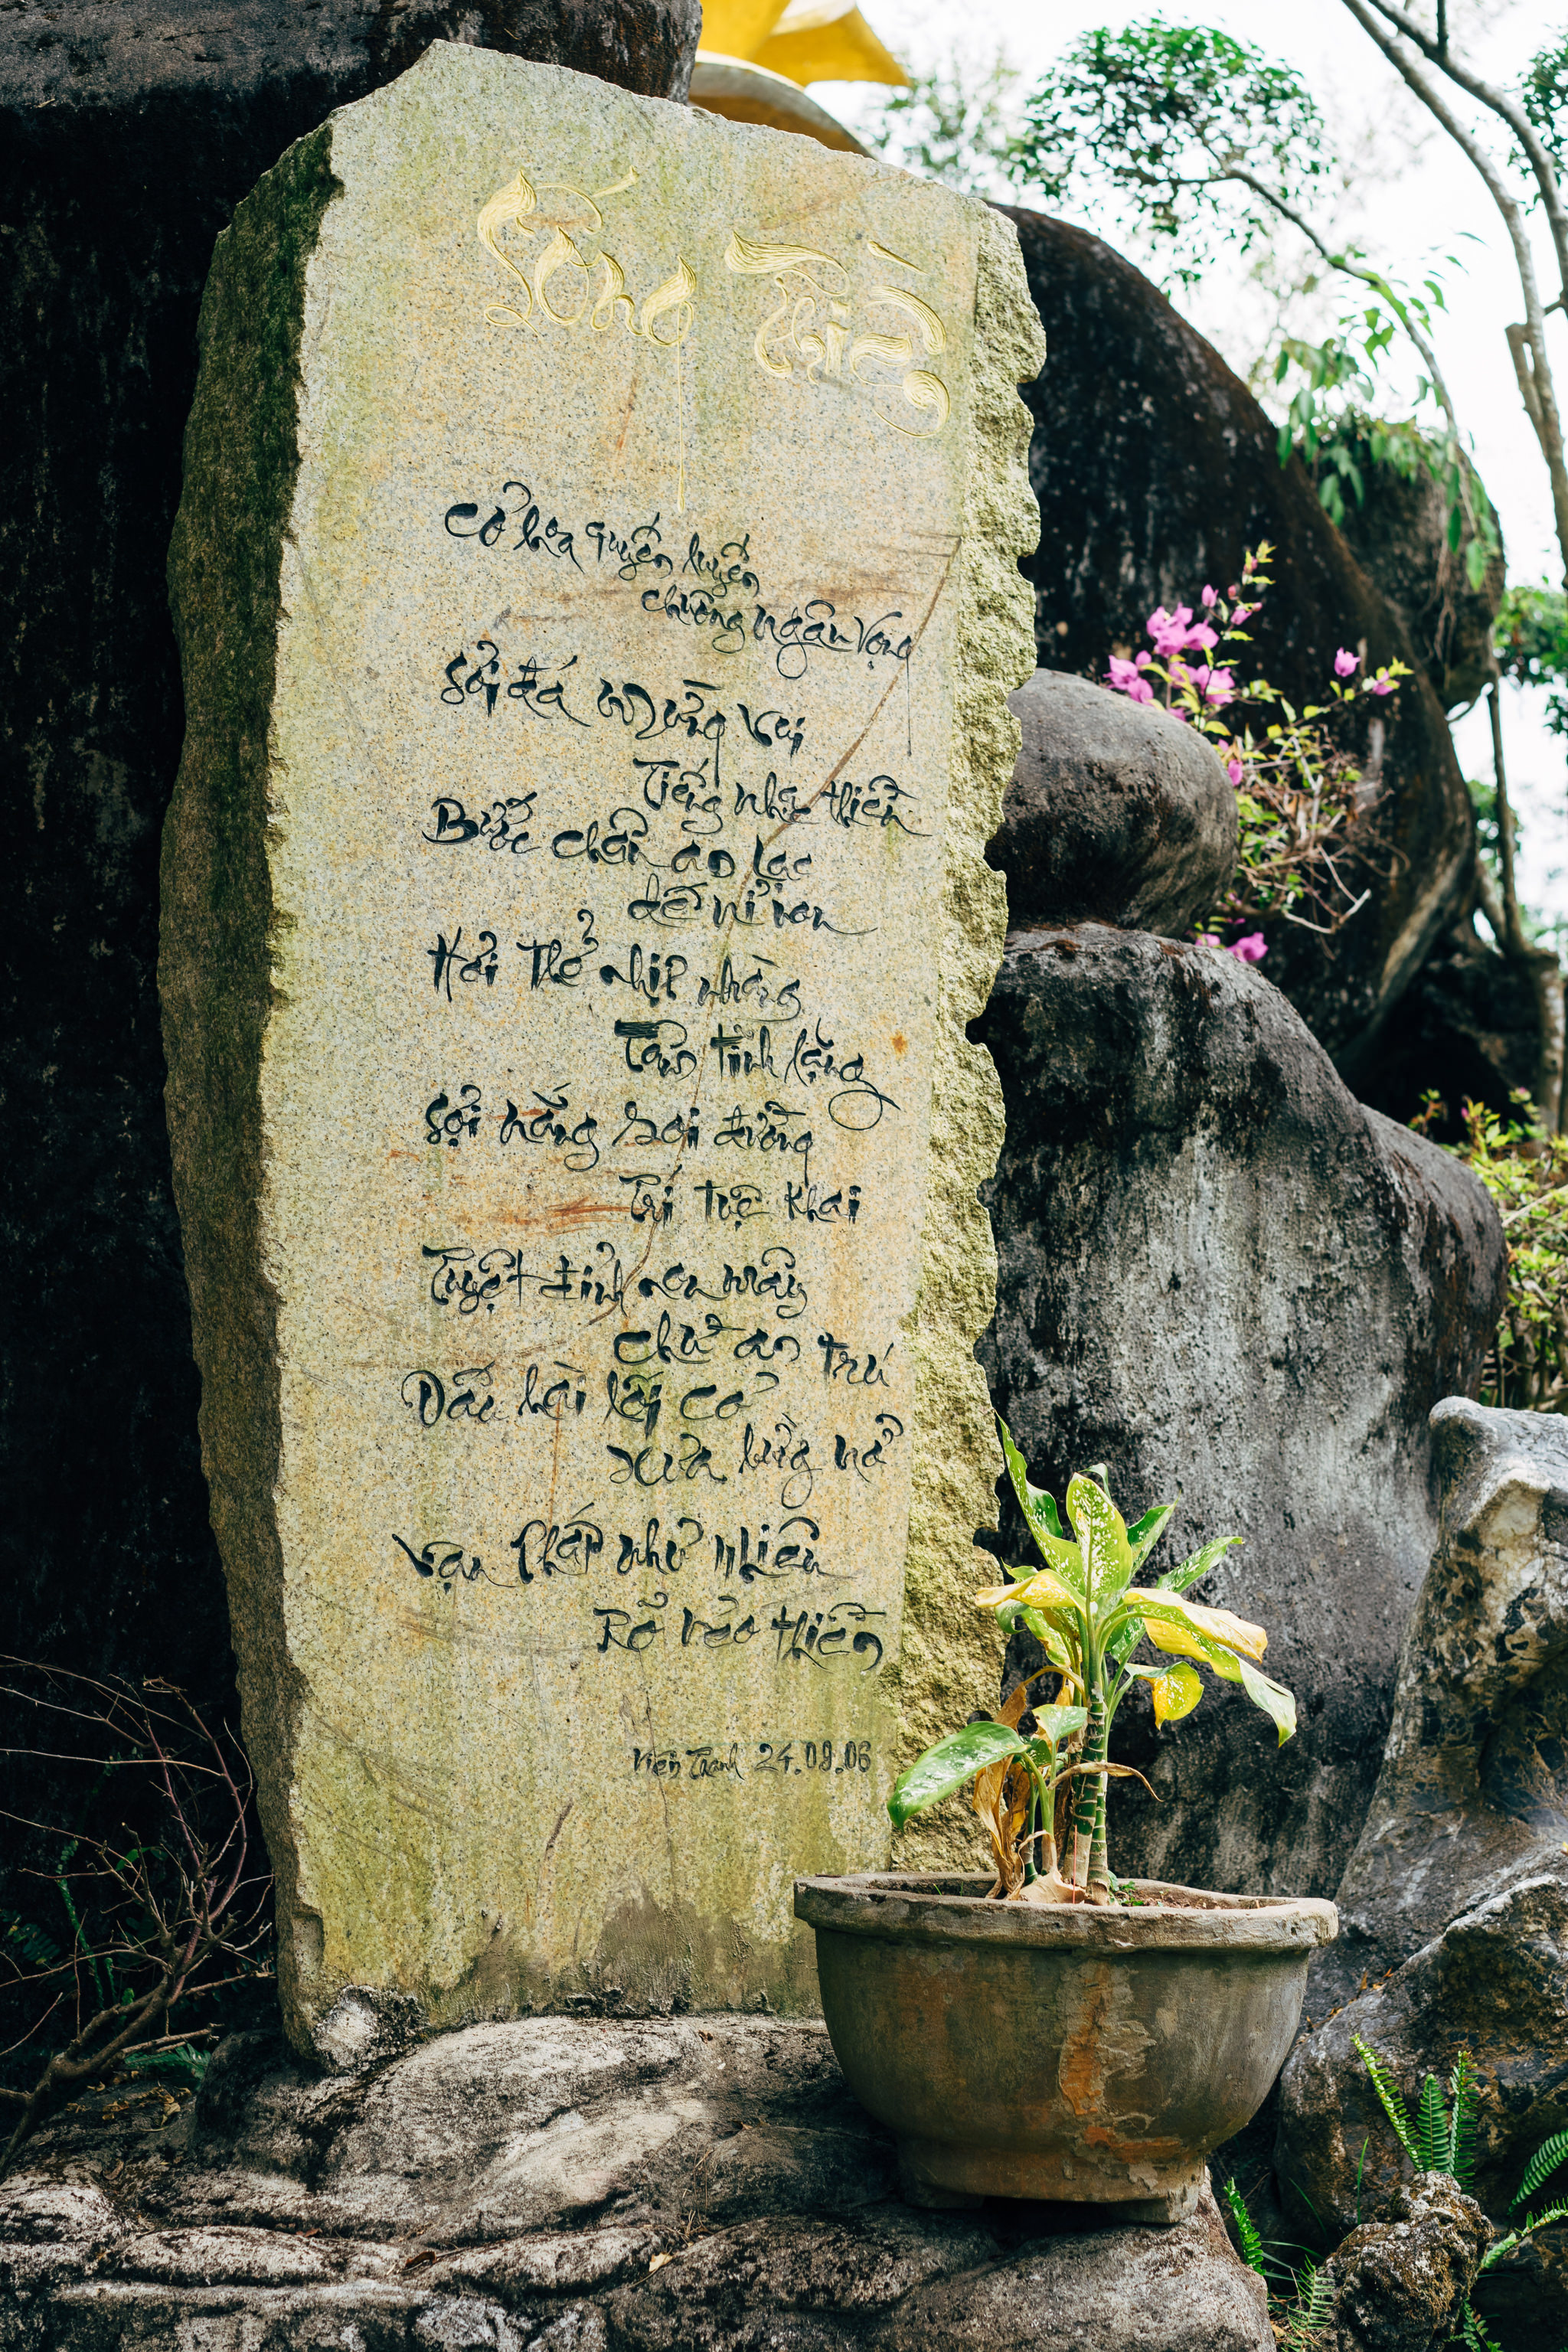 Sống Thiền
Cỏ hoa quyến luyến
chuông ngân vọng
Sỏi đá mừng vui
Tiếng nhạc thiền
Bước chân an lạc
dế nỉ non
Hơi Thở nhịp nhàng
Tâm tĩnh lặng
Sợi nắng soi đường
Trí tuệ khai
Tuyệt đỉnh non mây
chư an trú
Dấu hài lối cỏ
xưa bừng nở
Vạn Pháp như nhiên
Rõ nẻo thiền
Viên Thanh 24.09.06